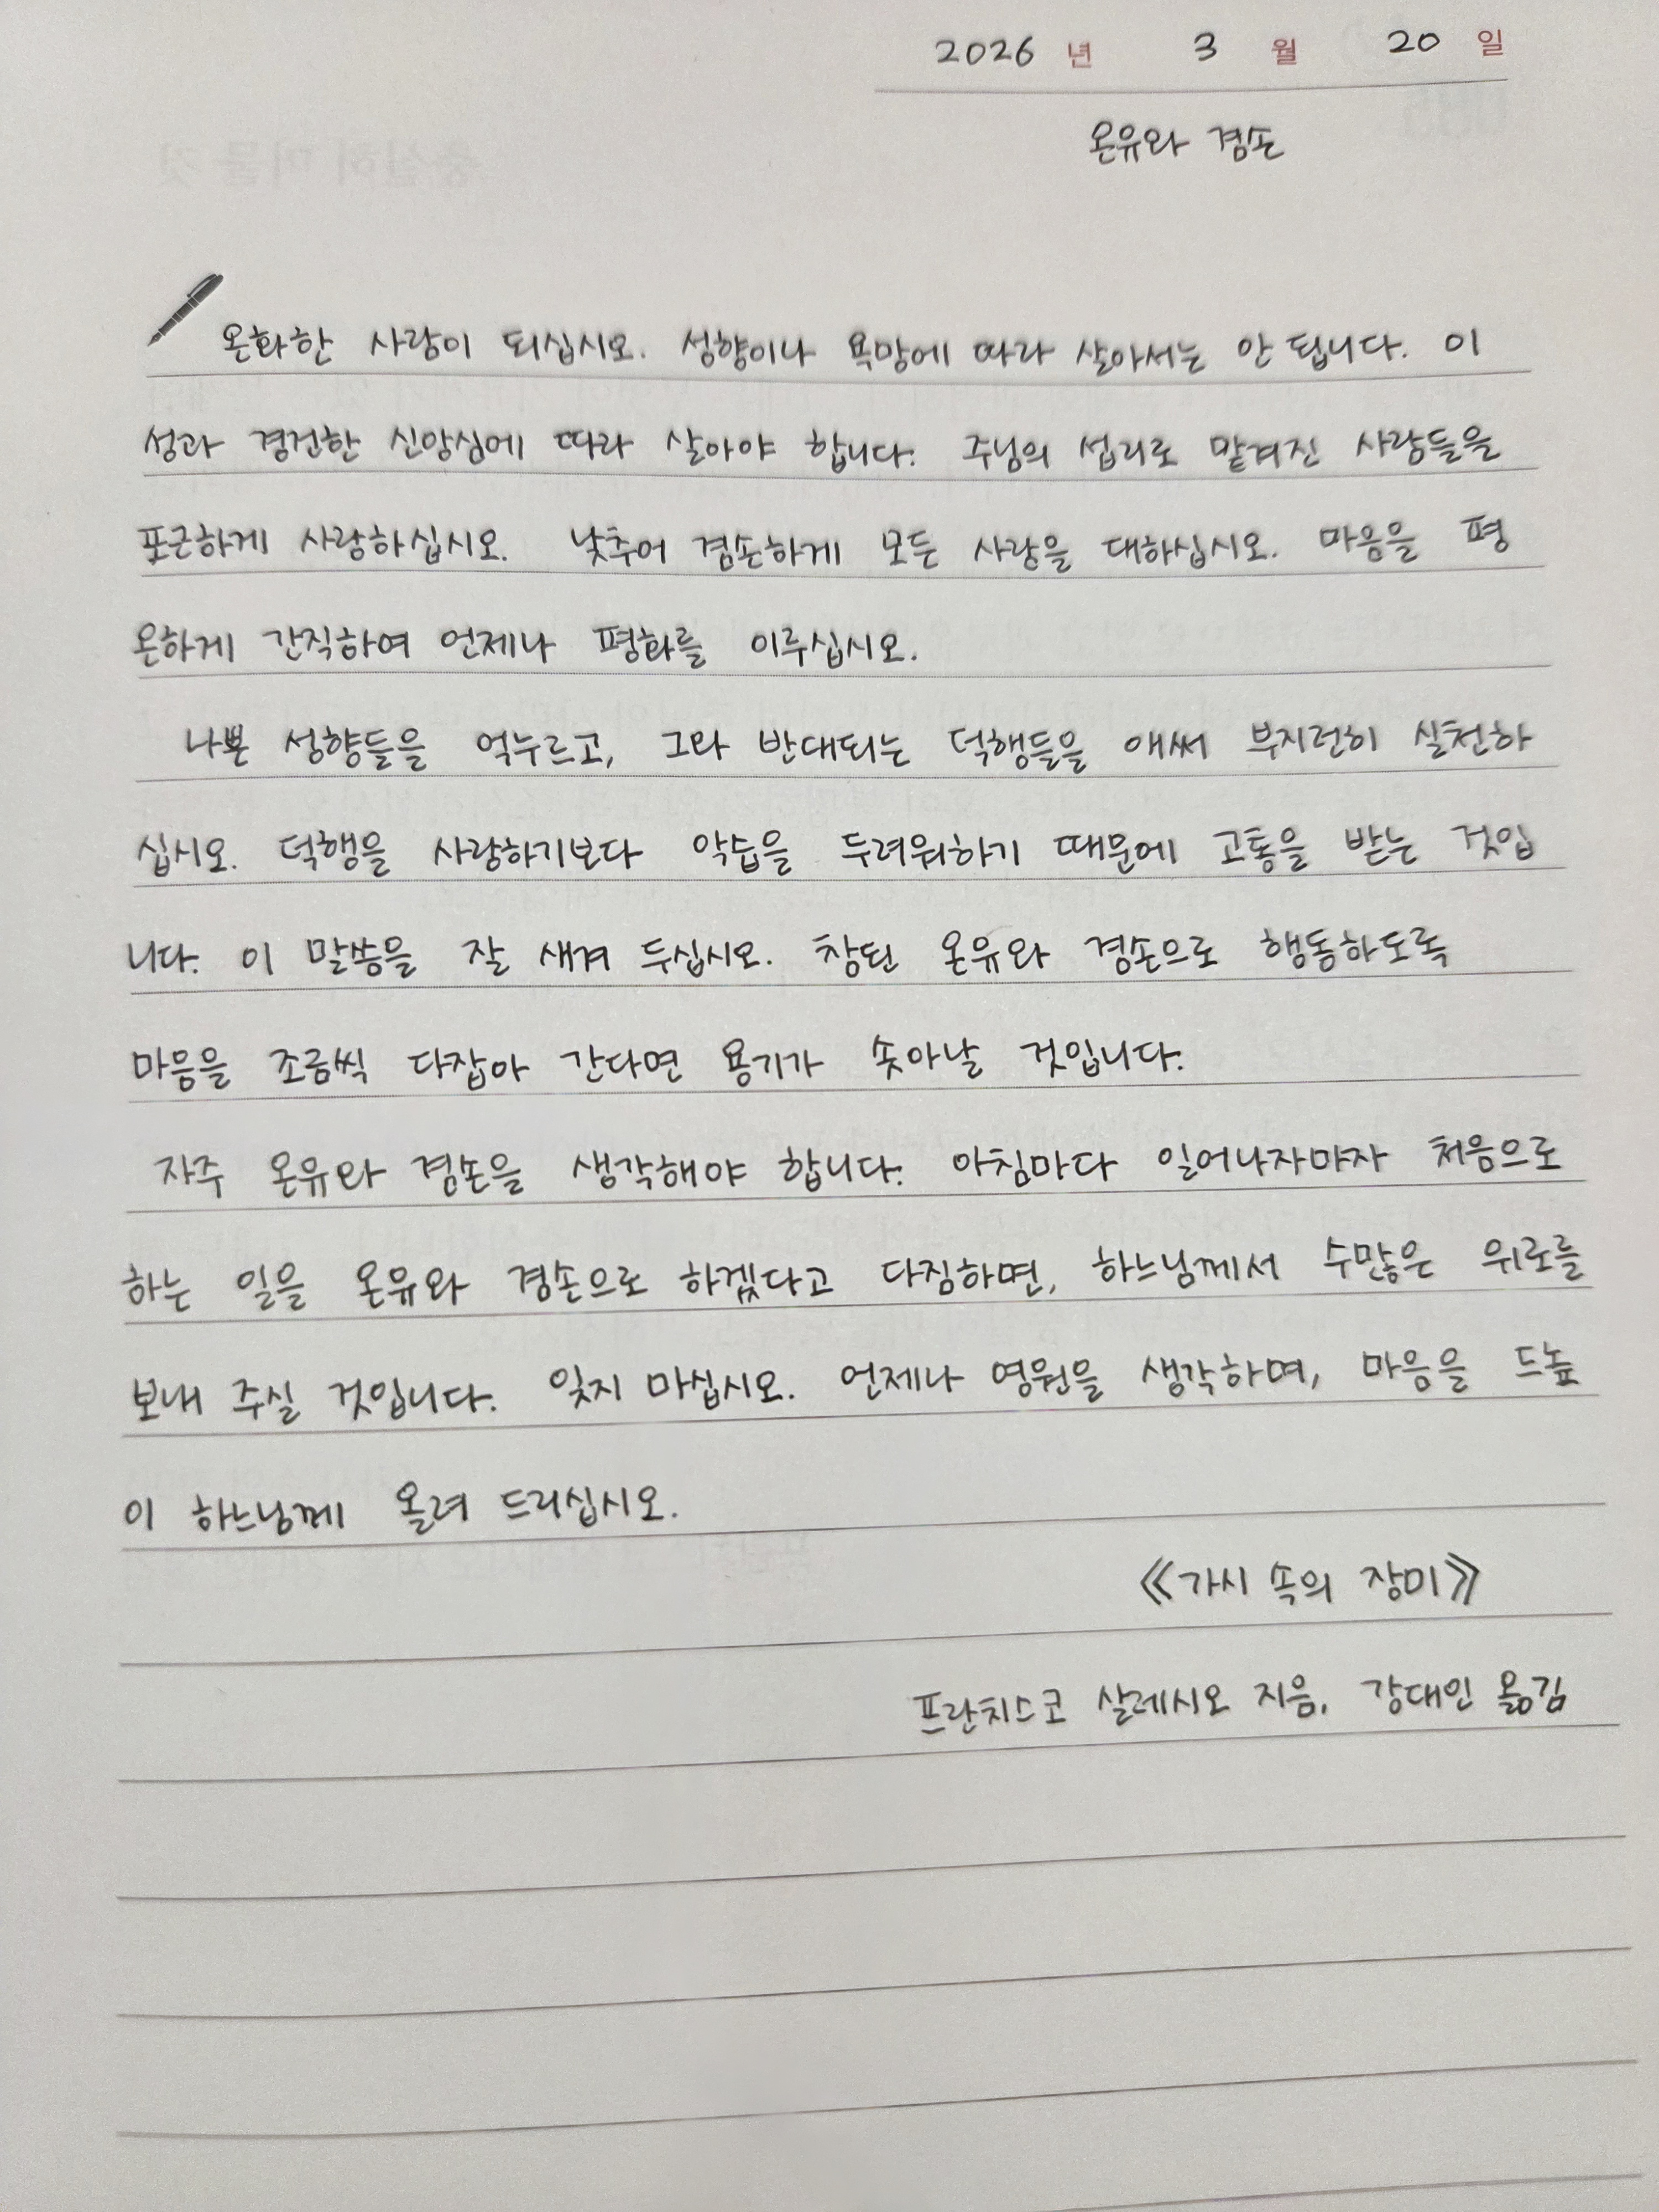 2026 년 3 월 20 일
온유와 겸손
온화한 사람이 되십시오. 성향이나 욕망에 따라 살아서는 안 됩니다. 이
성과 경건한 신앙심에 따라 살아야 합니다. 주님의 섭리로 맡겨진 사람들을
포근하게 사랑하십시오. 낮추어 겸손하게 모든 사람을 대하십시오. 마음을 평
온하게 간직하여 언제나 평화를 이루십시오.
나쁜 성향들을 억누르고, 그와 반대되는 덕행들을 애써 부지런히 실천하
십시오. 덕행을 사랑하기보다 악습을 두려워하기 때문에 고통을 받는 것입
니다. 이 말씀을 잘 새겨 두십시오. 참된 온유와 겸손으로 행동하도록
마음을 조금씩 다잡아 간다면 용기가 솟아날 것입니다.
자주 온유와 겸손을 생각해야 합니다. 아침마다 일어나자마자 처음으로
하는 일을 온유와 겸손으로 하겠다고 다짐하면, 하느님께서 수많은 위로를
보내 주실 것입니다. 잊지 마십시오. 언제나 영원을 생각하며, 마음을 드높
이 하느님께 올려 드리십시오.
《가시 속의 장미》
프란치스코 살레시오 지음, 강대인 옮김